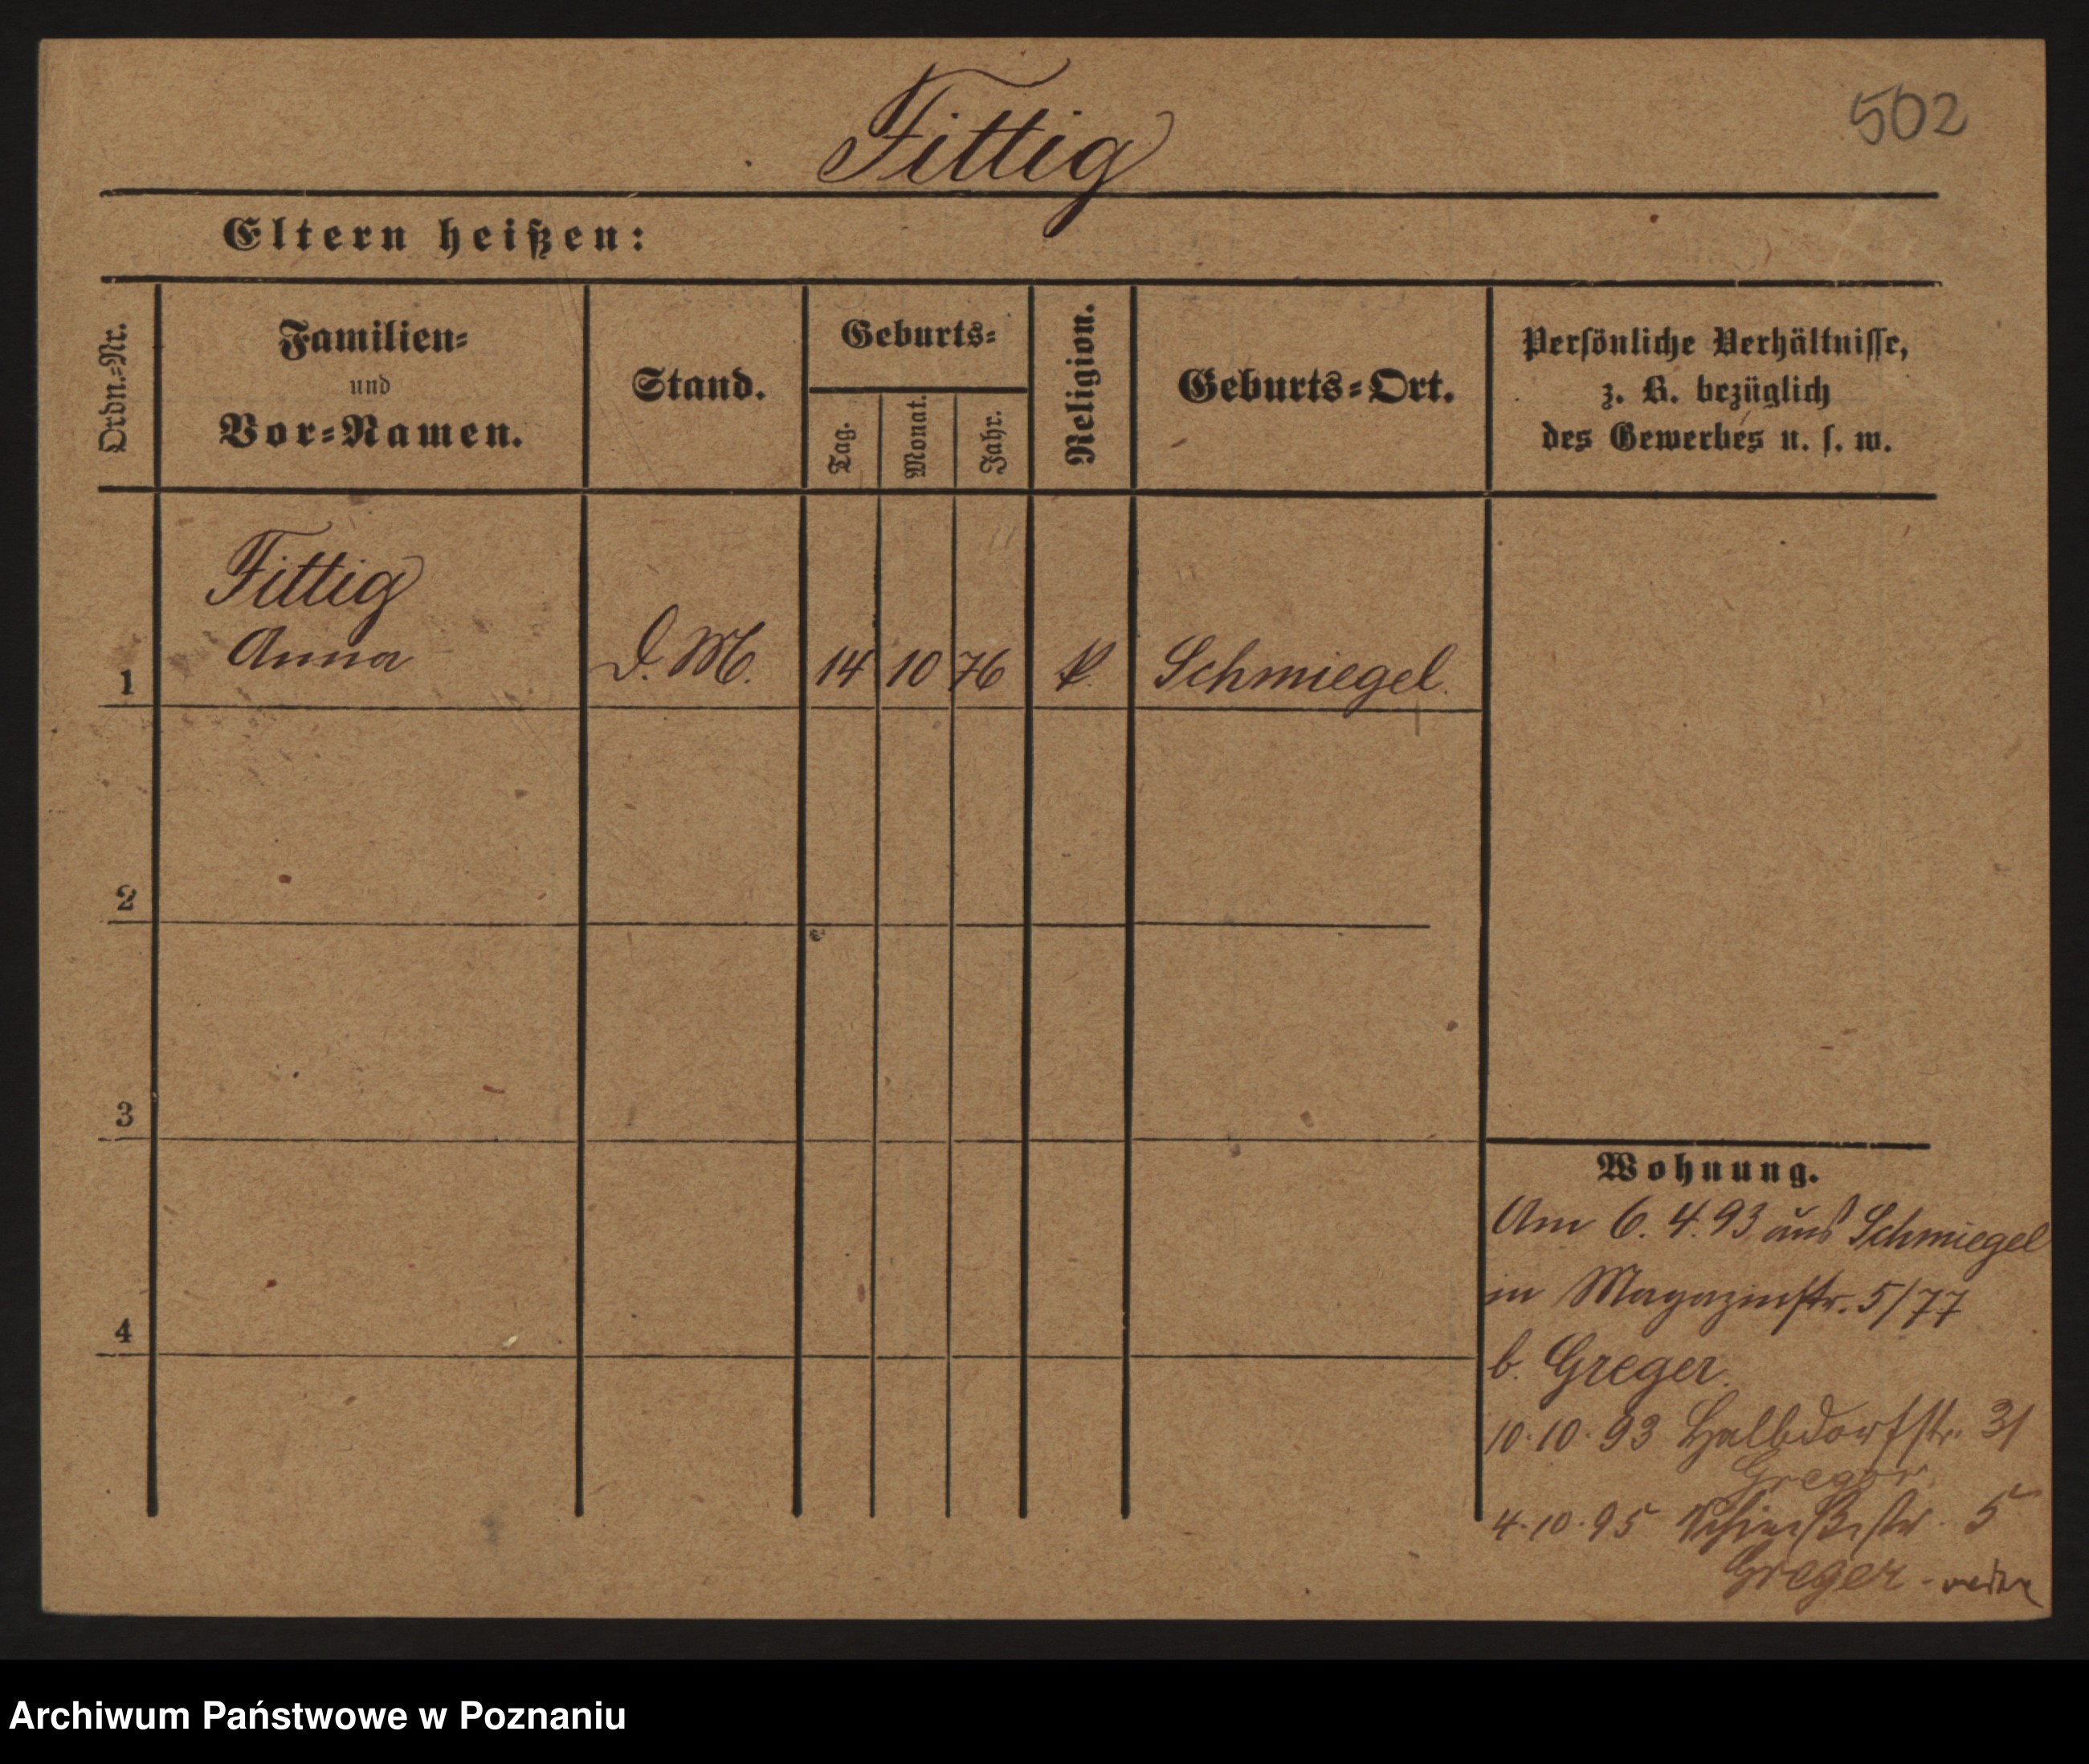 Fittig
502
Eltern heißen:
Ordn.-Nr.
Familien-
und
Vor-Namen.
Stand.
Geburts-
Tag.
Monat.
Jahr.
Religion.
Geburts-Ort.
Persönliche Verhältnisse,
z. B. bezüglich
des Gewerbes u. s. w.
Fittig
Anna
1 D. M. 14 10 76 k. Schmiegel.
2
3
4
Wohnung.
Am 6. 4. 93 aus Schmiegel
in Magazinstr. 5/77
b. Greger.
10. 10. 93 Halbdorfstr. 31
Gregor
4. 10. 95 5
Greger -
Archiwum Państwowe w Poznaniu